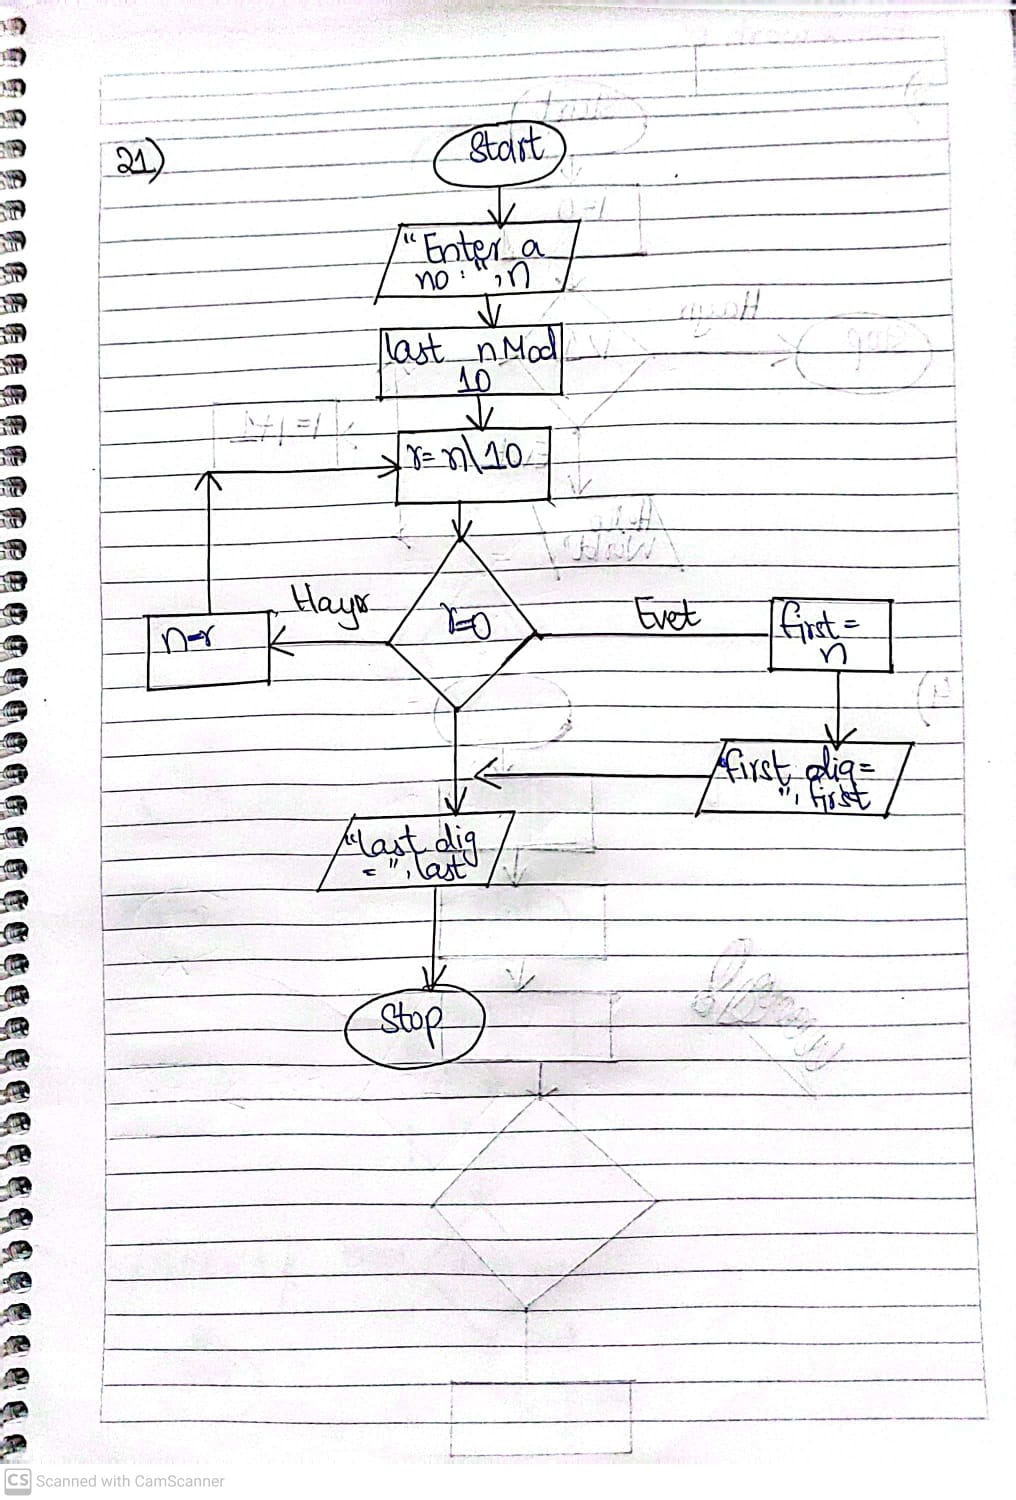 21)
Start
"Enter a
no: ", n
last n Mod
10
r= n\10
r=0
Hayır
n=r
Evet
first =
n
"first dig=
", first
"last dig
= ", last
Stop
CS Scanned with CamScanner